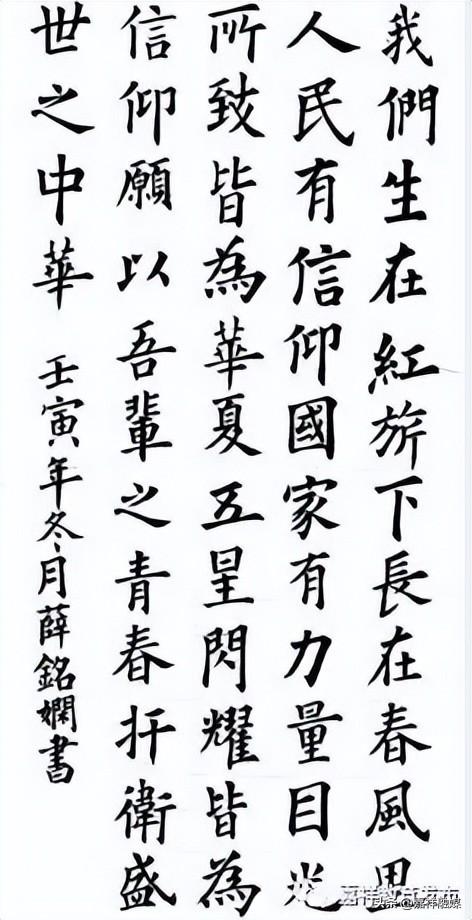 我們生在紅旂下長在春風里
人民有信仰國家有力量目光
所致皆為華夏五星閃耀皆為
信仰願以吾輩之青春扞衛盛
世之中華 壬寅年冬月薛銘嫻書
嘉祥教育发布
头条@嘉祥融媒